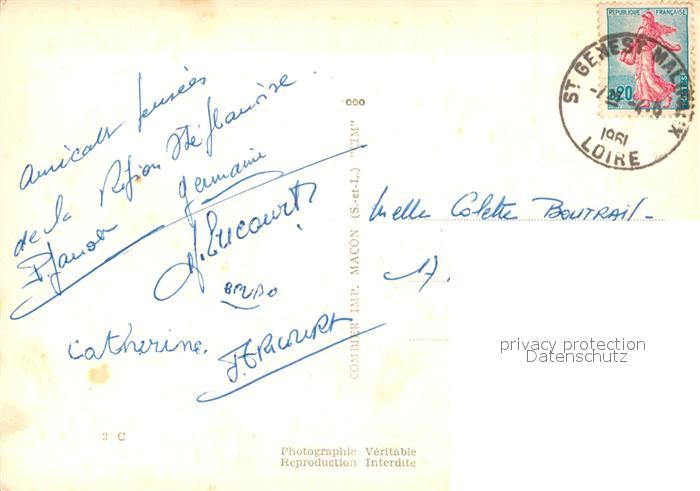 Amicales pensées
de la Région Stéphanoise
Germaine
Catherine.
°°°
COMBIER IMP. MACON (S.-et-L.) "CIM"
3 C
Photographie Véritable
Reproduction Interdite
REPUBLIQUE FRANÇAISE
0,20
POSTES
ST GENEST MALIFAUX
1961
LOIRE
Melle Colette BOUTRAIL-
17.
privacy protection
Datenschutz